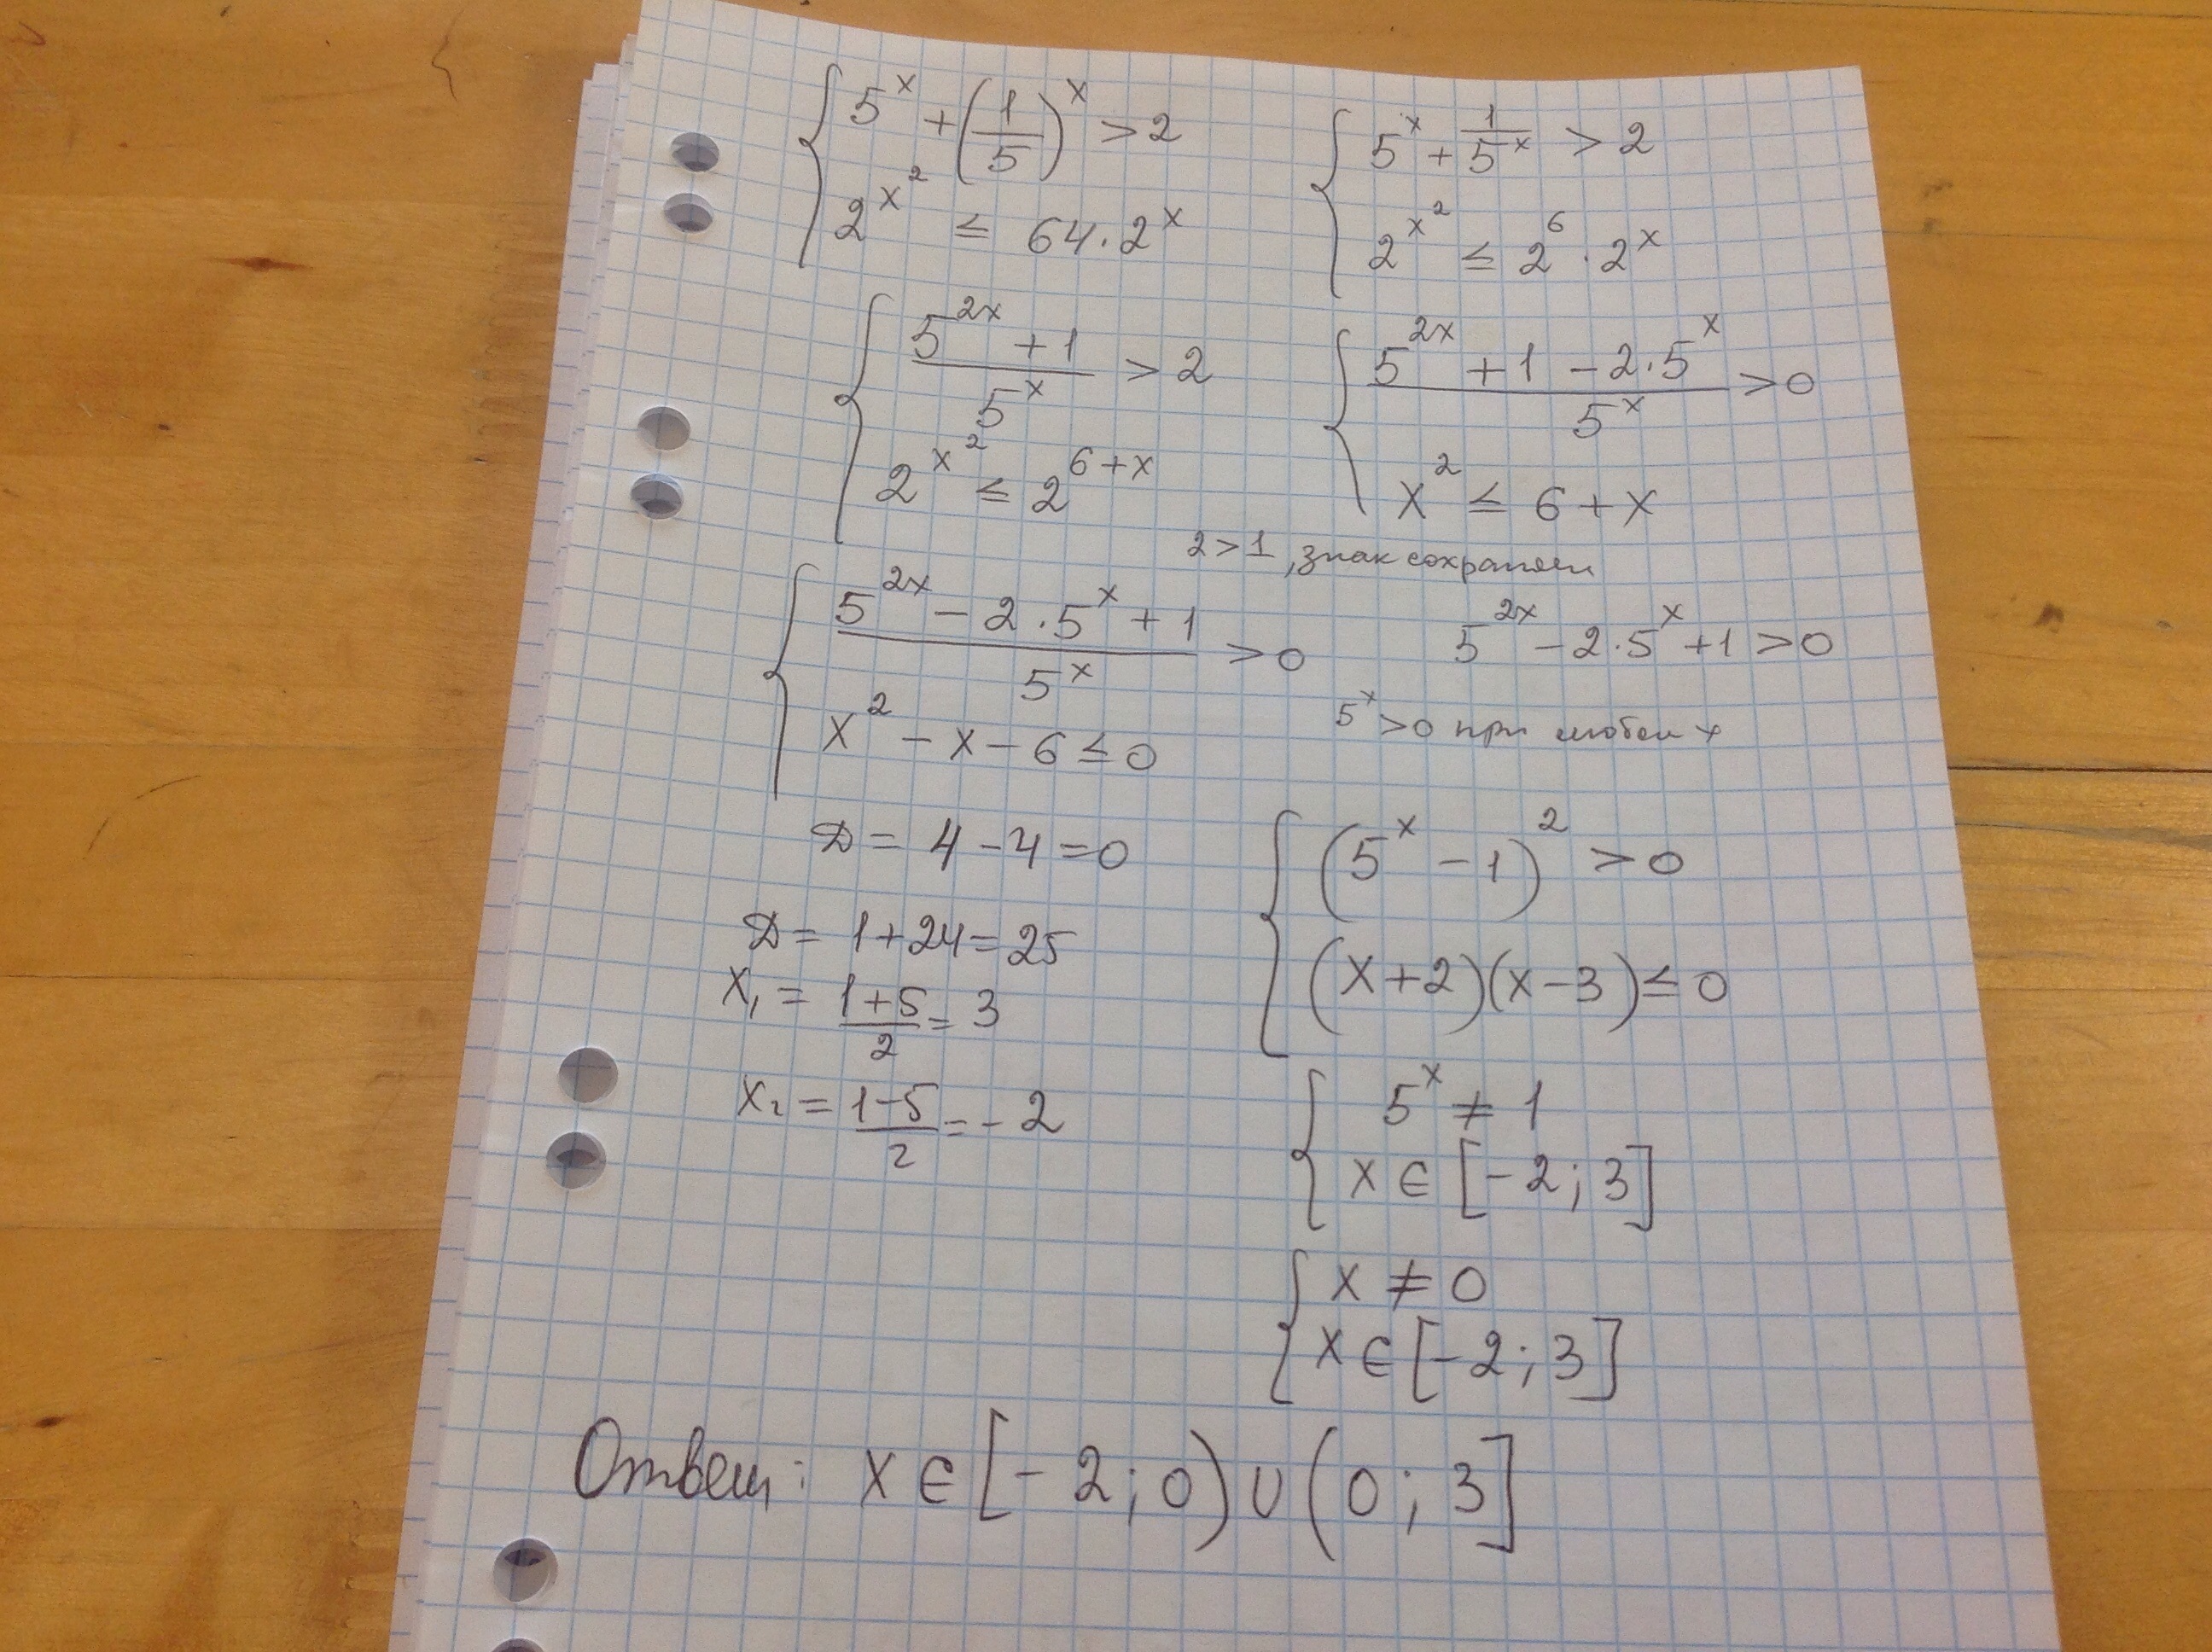 5^x + (1/5)^x > 2
2^{x^2} ≤ 64 · 2^x
5^x + 1/5^x > 2
2^{x^2} ≤ 2^6 · 2^x
(5^{2x} + 1)/5^x > 2
2^{x^2} ≤ 2^{6+x}
(5^{2x} + 1 - 2·5^x)/5^x > 0
x^2 ≤ 6 + x
2 > 1, знак сохраняем
(5^{2x} - 2·5^x + 1)/5^x > 0
x^2 - x - 6 ≤ 0
5^{2x} - 2·5^x + 1 > 0
5^x > 0 при любом x
D = 4 - 4 = 0
D = 1 + 24 = 25
x₁ = (1+5)/2 = 3
x₂ = (1-5)/2 = -2
(5^x - 1)^2 > 0
(x+2)(x-3) ≤ 0
5^x ≠ 1
x ∈ [-2; 3]
x ≠ 0
x ∈ [-2; 3]
Ответ: x ∈ [-2; 0) ∪ (0; 3]